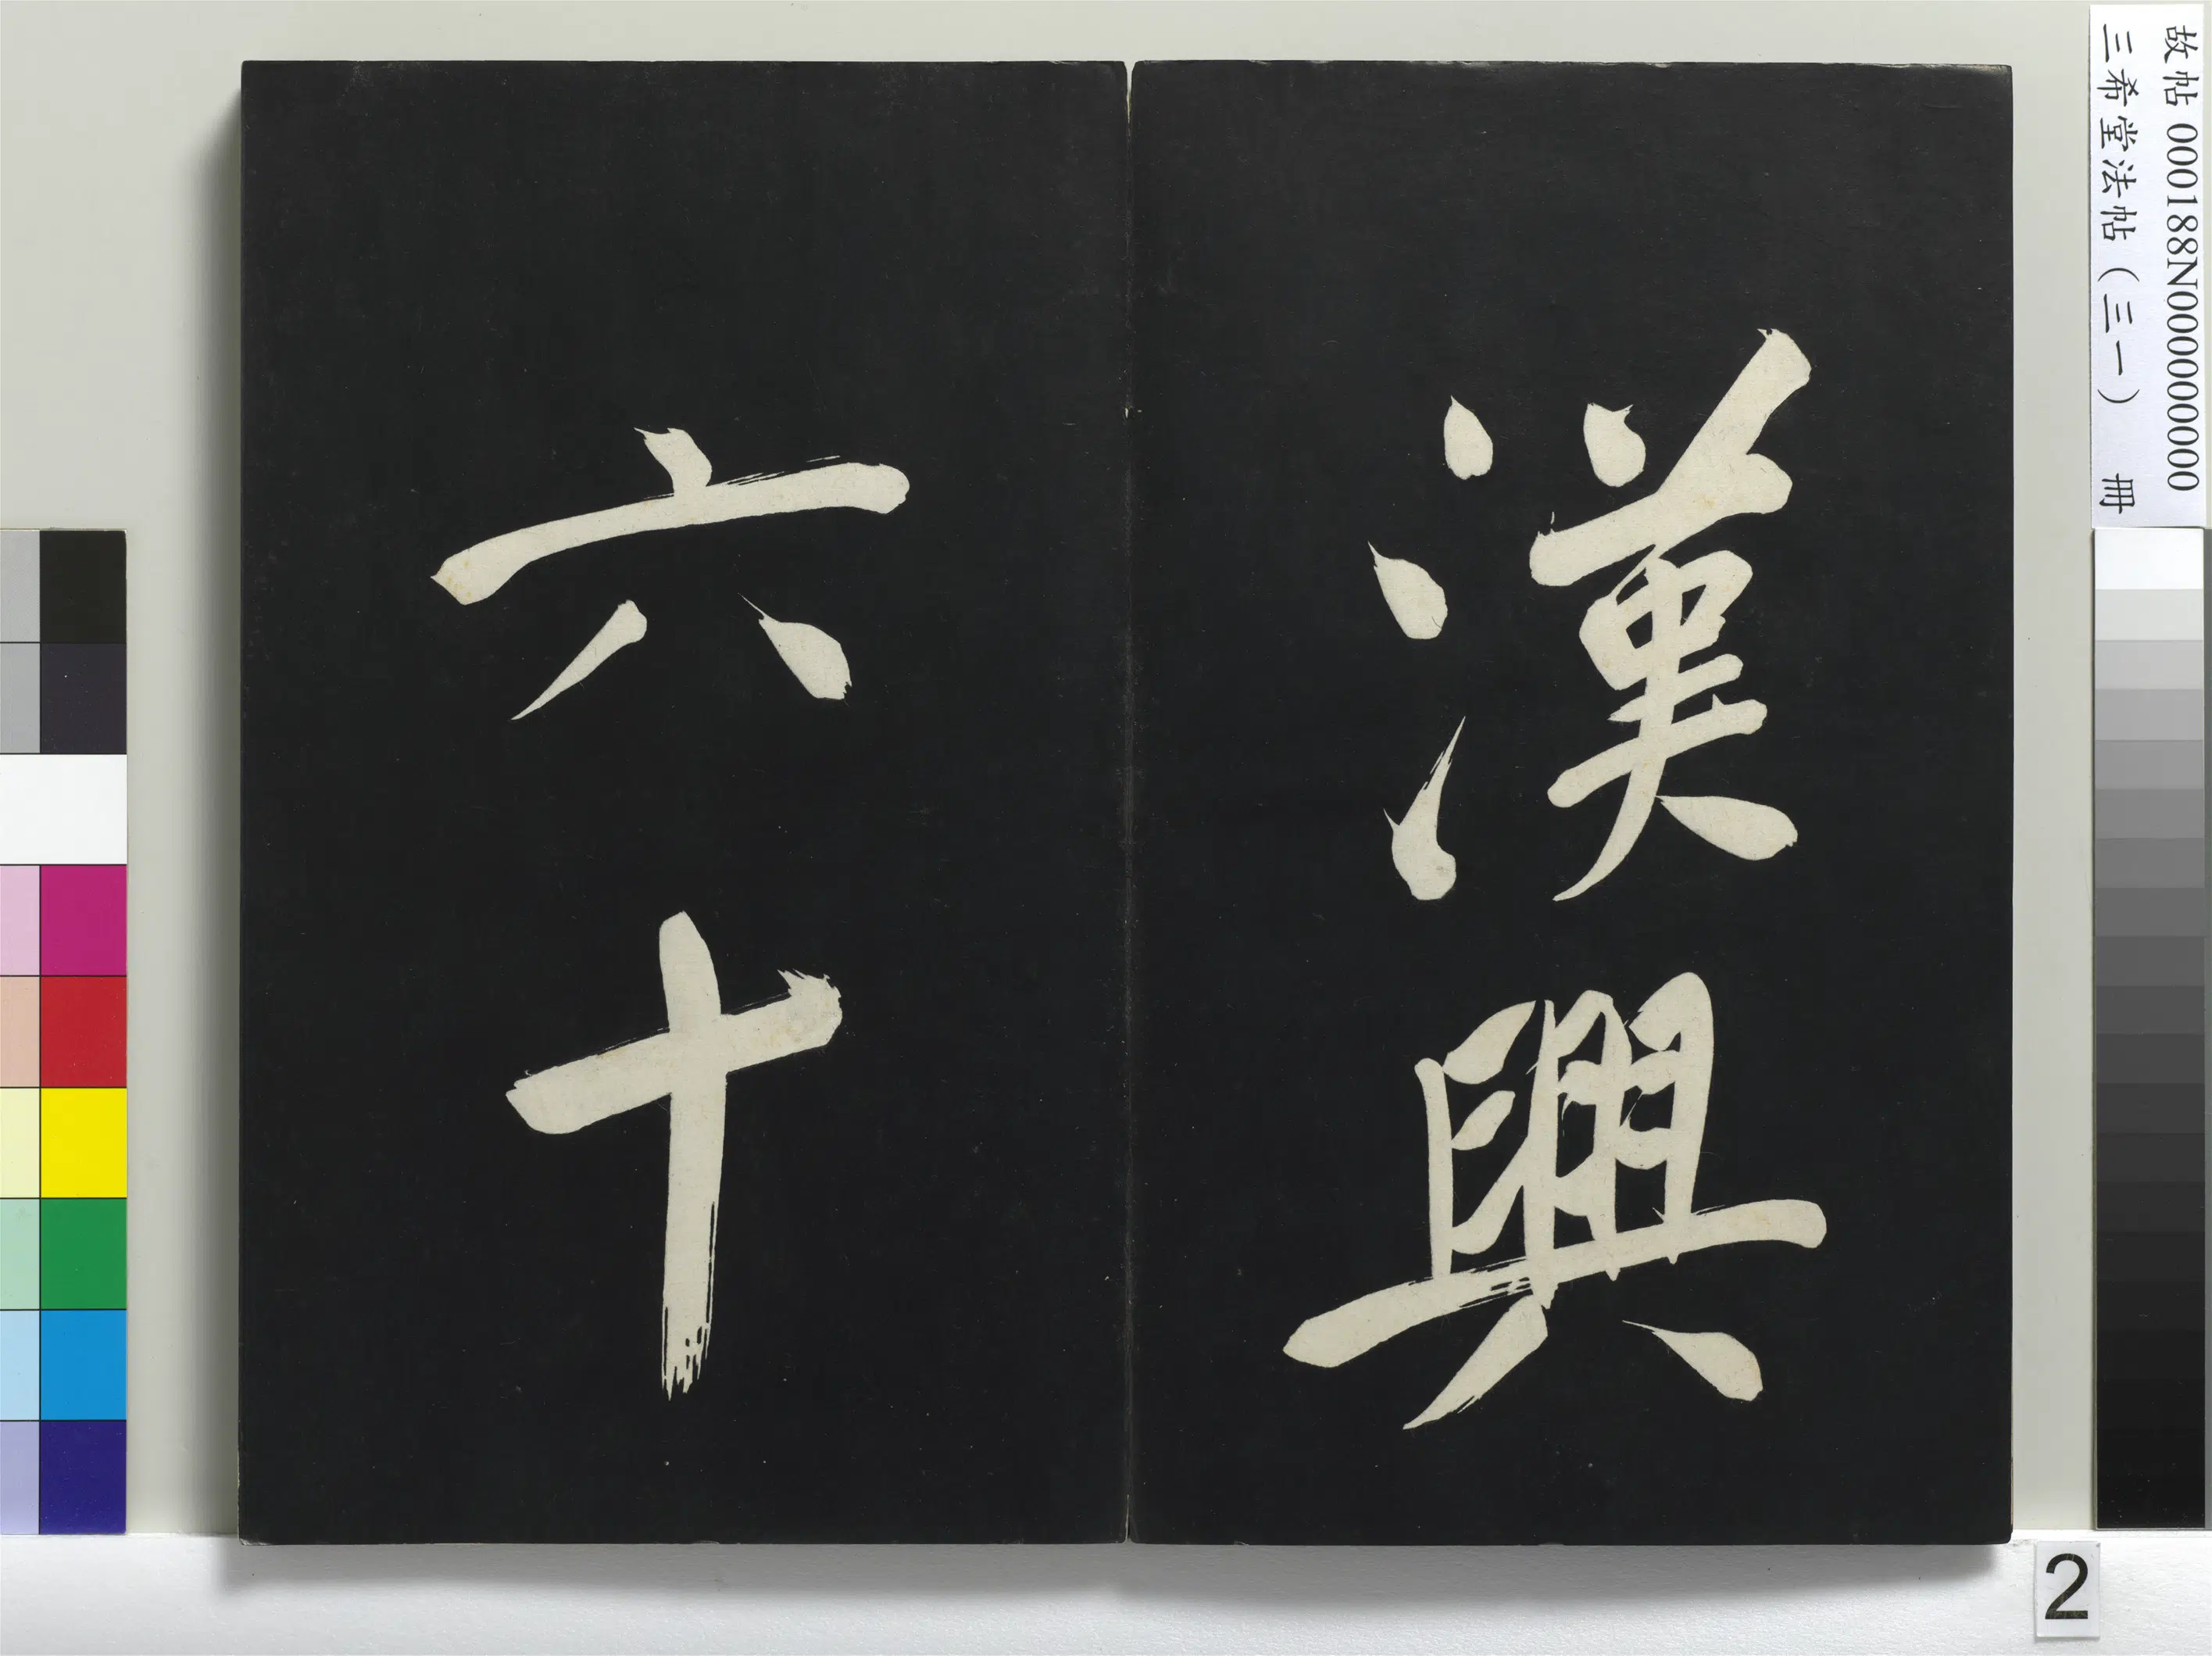 漢興
六十
故帖 000188N000000000
三希堂法帖（三一） 冊
2